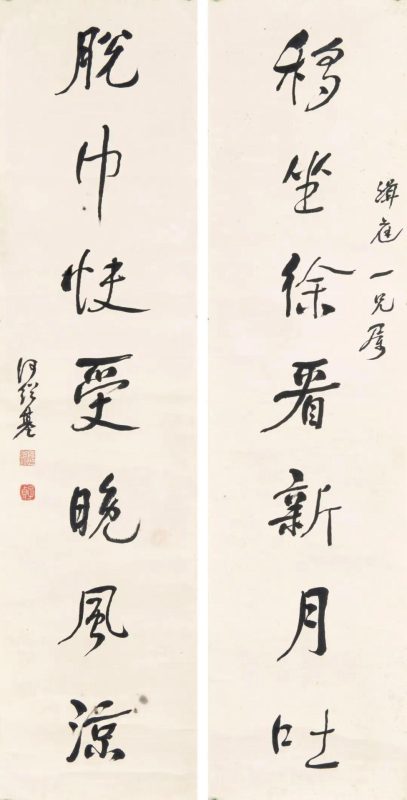 移坐徐看新月吐
緝庭一兄屬
脫巾快受晚風涼
何紹基